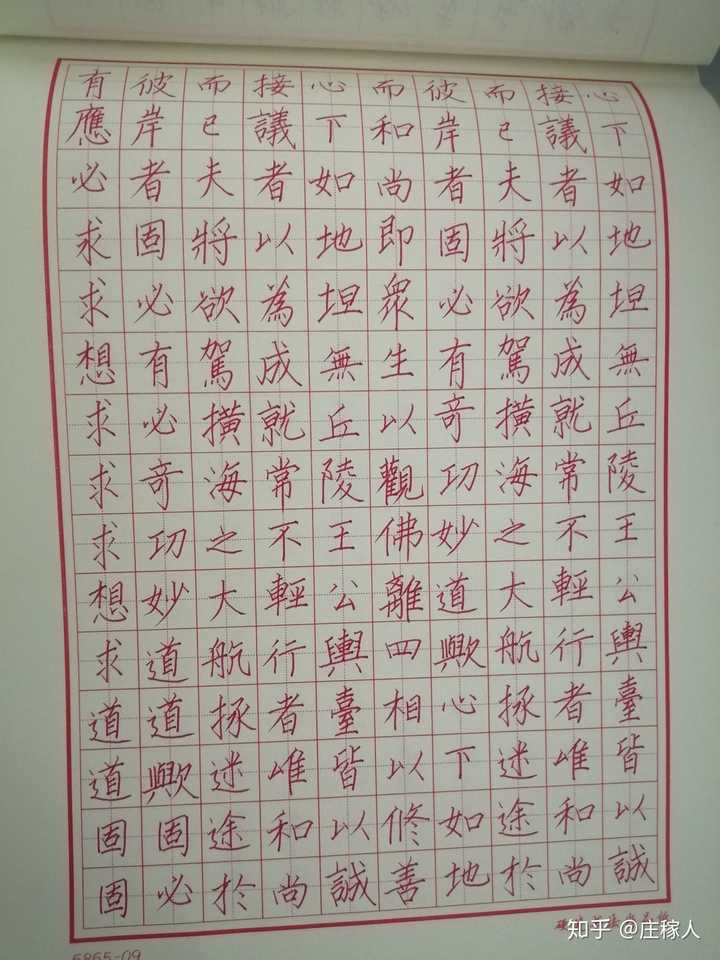 心下如地坦無丘陵王公輿臺皆以誠
接議者以為成就常不輕行者唯和尚
而已夫將欲駕橫海之大航拯迷途於
彼岸者固必有奇功妙道歟心下如地
而和尚即眾生以觀佛離四相以修善
心下如地坦無丘陵王公輿臺皆以誠
接議者以為成就常不輕行者唯和尚
而已夫將欲駕橫海之大航拯迷途於
彼岸者固必有必奇功妙道道歟固必
有應必求求想求求求想求道道固固
知乎 @庄稼人